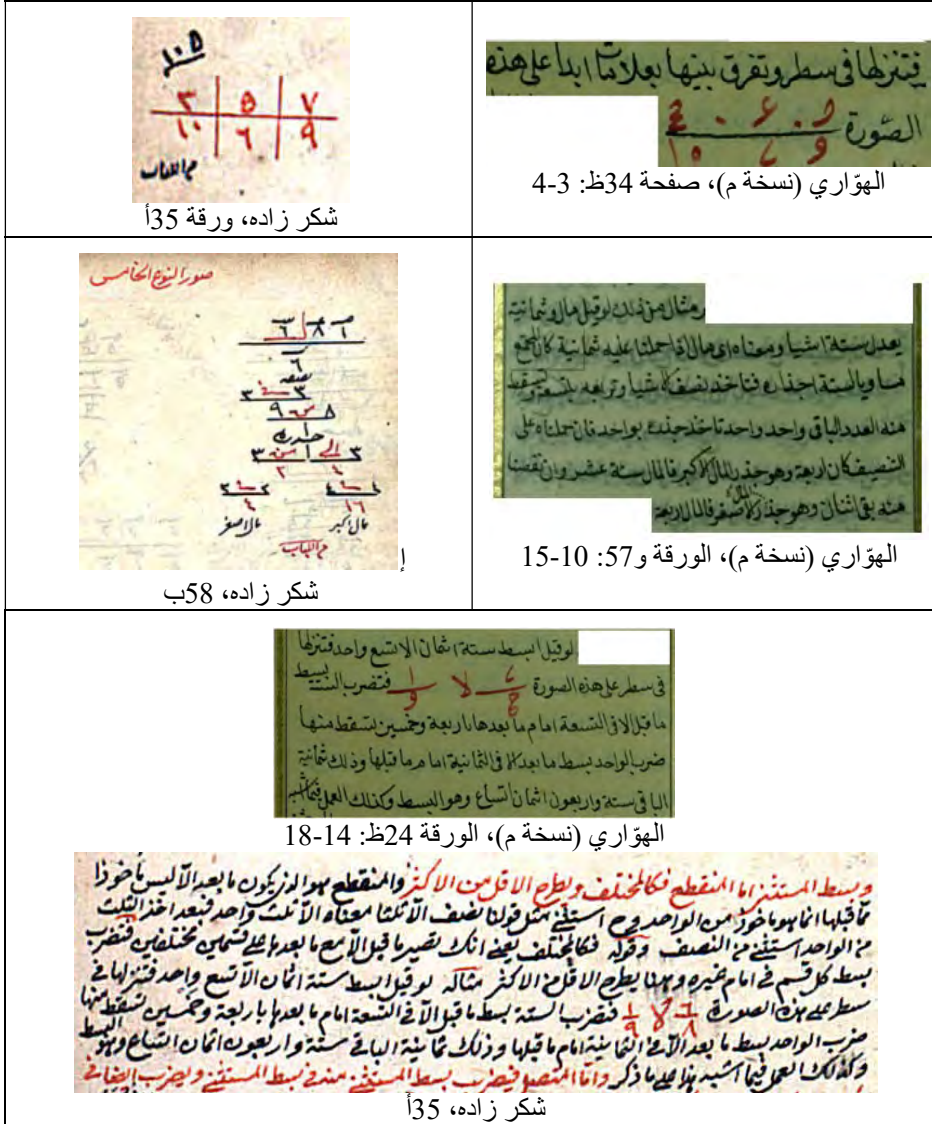 فتنزلها في سطر وتفرق بينها بعلامات ابدا على هذه
الصّورة
الهوّاري (نسخة م)، صفحة 34ظ: 3-4
٣ ٥ ٧
١٠ ٦ ٩
من اللباب
شكر زاده، ورقة 35أ
ومثال من ذلك لو قيل مال وثمانية
يعدل ستة اشيا ومعناه اي مال اذا حملنا عليه ثمانية كان المجتمع
مساويا لستة اجذاره فتاخذ نصف الاشيا وتربعه بتسعة وتسقط
منه العدد الباقي واحد تاخذ جذره بواحد فان حملناه على
التنصيف كان اربعة وهو جذر المال الاكبر فالمال ستة عشر وان نقصنا
منه بقي اثنان وهو جذر المال الاصغر فالمال اربعة
الهوّاري (نسخة م)، الورقة و57: 10-15
صور النوع الخامس
٦
نصفه
٣ ٣
٩ ٨
١
جذره
مال اكبر
مال اصغر
من اللباب
إ
شكر زاده، 58ب
لو قيل ابسط ستة اثمان الا تسع واحد فتنزلها
في سطر على هذه الصورة لا فتضرب الستة بسط
ما قبل الا في التسعة امام ما بعدها باربعة وخمسين تسقط منها
ضرب الواحد بسط ما بعد الا في الثمانية امام ما قبلها وذلك ثمانية
الباقي ستة واربعون اثمان اتساع وهو البسط وكذلك العمل فيما اشبه
الهوّاري (نسخة م)، الورقة 24ظ: 14-18
وبسط المستثنى اما المنقطع فكالمختلف ويطرح الاقل من الاكثر والمنقطع هو الذي يكون ما بعد الا ليس ماخوذا
مما قبلها انما هو ماخوذ من الواحد استثنى مثل قولنا نصف الا ثلثا معناه الا ثلث واحد فبعد اخذ الثلث
من الواحد استثنى من النصف وقوله فكالمختلف يعني انك تصير ما قبل الا مع ما بعدها على قسمين مختلفين فتضرب
بسط كل قسم في امام غيره وهنا يطرح الاقل من الاكثر مثاله لو قيل ابسط ستة اثمان الا تسع واحد فتنزلها في
سطر على هذه الصورة ٦/٨ لا ١/٩ فتضرب الستة بسط ما قبل الا في التسعة امام ما بعدها باربعة وخمسين تسقط منها
ضرب الواحد بسط ما بعد الا في الثمانية امام ما قبلها وذلك ثمانية الباقي ستة واربعون اثمان اتساع وهو البسط
وكذلك العمل فيما اشبه هذا على ما ذكر واما المتصل فيضرب بسط المستثنى منه في بسط المستثنى ويضرب ايضا في
شكر زاده، 35أ